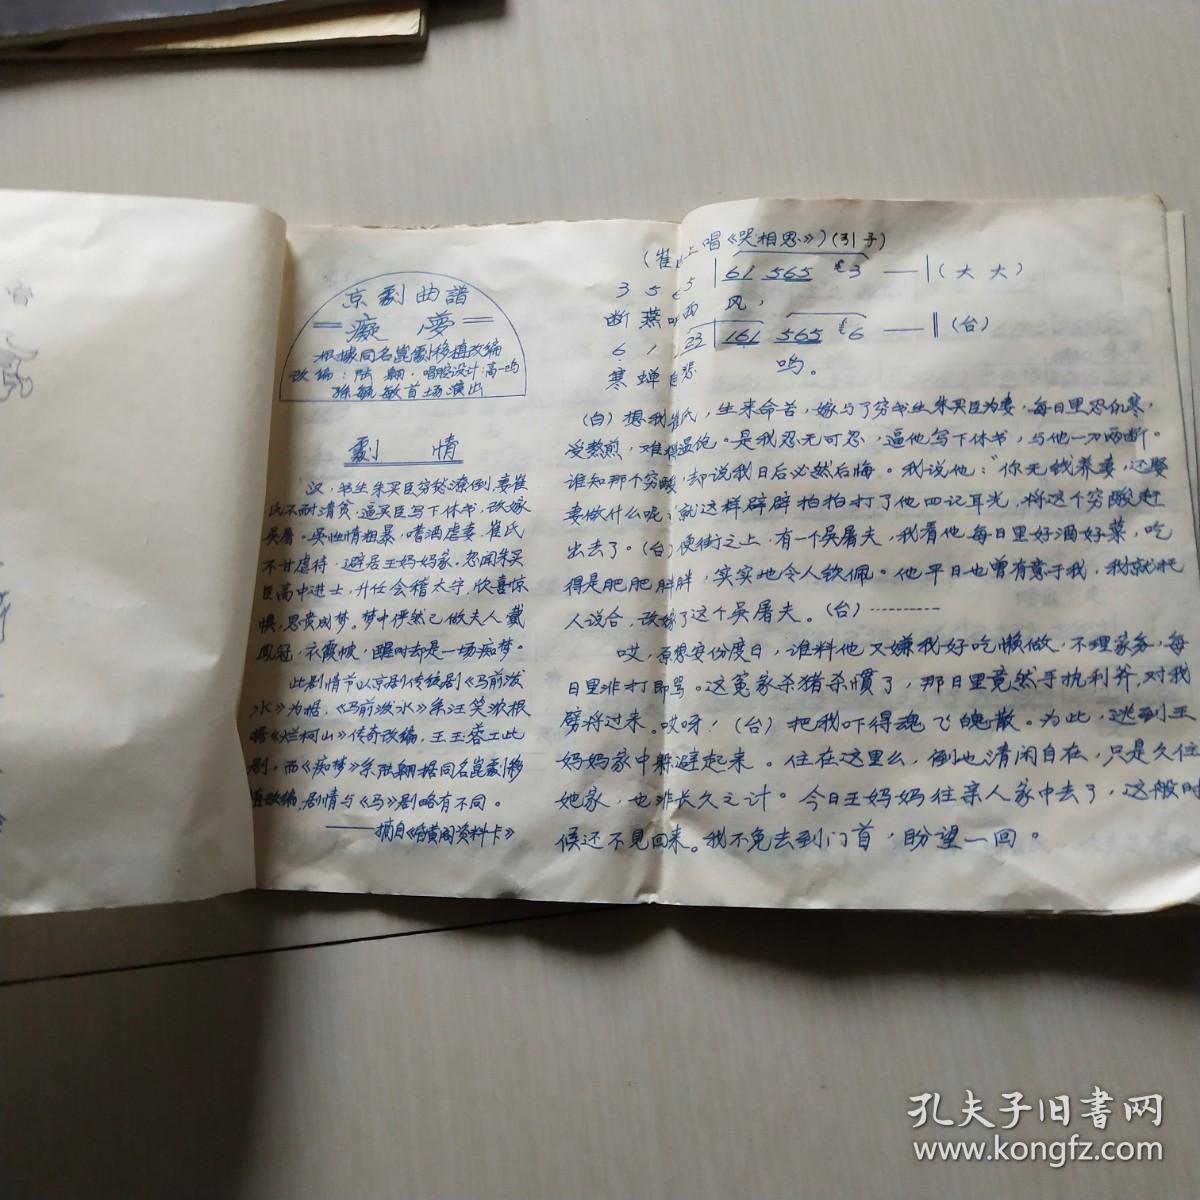 京劇曲譜
癡夢
根据同名崑劇移植改编
改编：陆翱·唱腔设计：高一鸣
孙毓敏首场演出
劇情
汉，书生朱买臣穷愁潦倒，妻崔
氏不耐清贫，逼买臣写下休书，改嫁
吴屠。吴性情粗暴，嗜酒虐妻，崔氏
不甘虐待，避居王妈妈家。忽闻朱买
臣高中进士，升任会稽太守，欣喜惊
惧，思贵成梦。梦中俨然已做夫人，戴
凤冠，衣霞帔，醒时却是一场痴梦。
此剧情节以京剧传统剧《马前泼
水》为据，《马前泼水》系汪笑侬根
据《烂柯山》传奇改编，王玉蓉工此
剧。而《痴梦》系陆翱据同名崑劇移
植改编，剧情与《马》剧略有不同。
——摘自《 黄阁资料卡》
（崔 上唱《哭相思》）（引子）
3 5 6 5 | 61 565 3 — |（大 大）
断燕 雨 风，
6 1 23 | 161 565 6 — ‖（台）
寒蝉自悲 鸣。
（白）想我崔氏，生来命苦，嫁与了穷书生朱买臣为妻，每日里忍饥寒，
受熬煎，难得温饱。是我忍无可忍，逼他写下休书，与他一刀两断。
谁知那个穷酸，却说我日后必然后悔。我说他：“你无钱养妻，还娶
妻做什么呢，就这样辟辟拍拍打了他四记耳光，将这个穷酸赶
出去了。（台）便街之上，有一个吴屠夫，我看他，每日里好酒好菜，吃
得是肥肥胖胖，实实地令人钦佩。他平日也曾有意于我，我就托
人说合，改嫁了这个吴屠夫。（台）----------
哎，原想安份度日，谁料他又嫌我好吃懒做，不理家务，每
日里非打即骂。这冤家杀猪杀惯了，那日里竟然手执利斧，对我
劈将过来。哎呀！（台）把我吓得魂飞魄散。为此，逃到王
妈妈家中躲避起来。住在这里么，倒也清闲自在，只是久住
她家，也非长久之计。今日王妈妈往亲人家中去了，这般时
候还不见回来。我不免去到门首，盼望一回。
孔夫子旧書网
www.kongfz.com